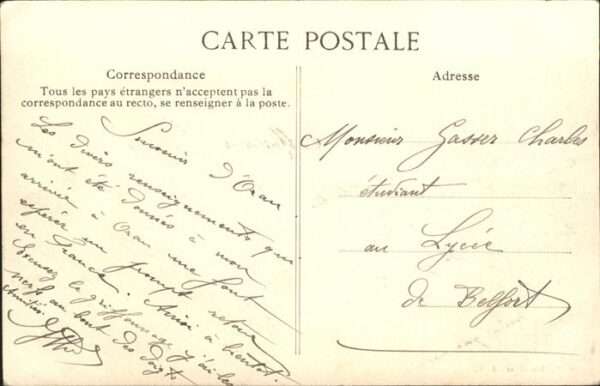 CARTE POSTALE
Correspondance
Tous les pays étrangers n'acceptent pas la
correspondance au recto, se renseigner à la poste.
Adresse
Souvenir d'Oran
Les divers renseignements qui
m'ont été donnés à mon
arrivée à Oran me font
espérer un prompt retour
en France. Ainsi à bientôt.
Excusez le griffonnage j'ai les
nerfs au bout des doigts
Amitiés
Monsieur Gasser Charles
étudiant
au Lycée
de Belfort